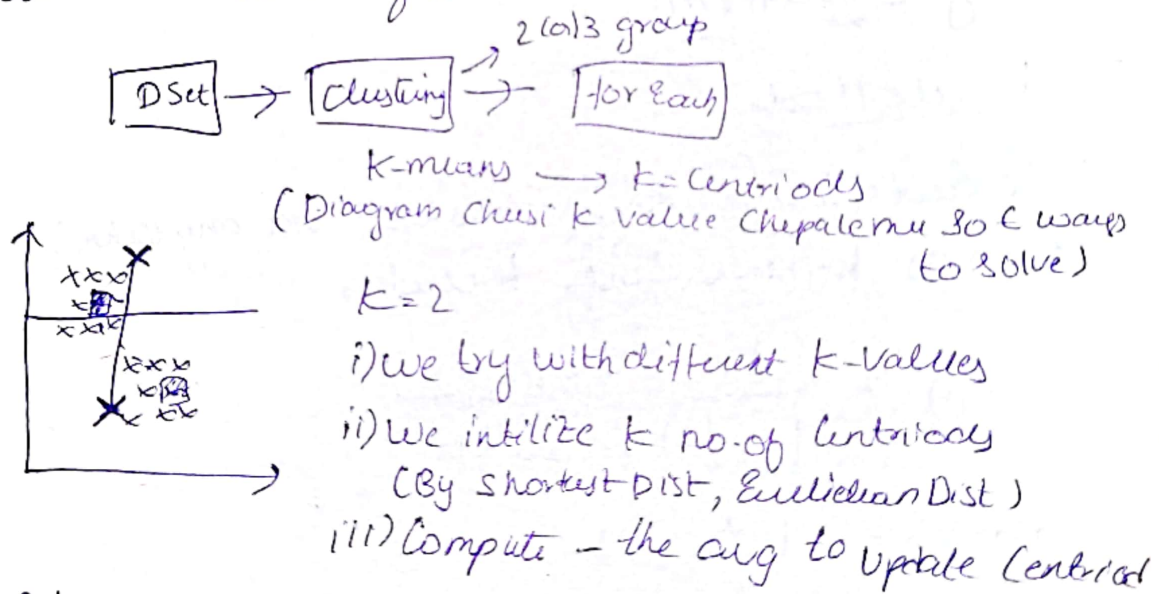 2 (or) 3 group
DSet → Clustering → for Each
K-means → k = Centriods
(Diagram Chusi k value Chepalemu so ways
to solve)
K = 2
i) we try with different k-values
ii) We intilize k no. of Centriods
(By shortest Dist, Euclidean Dist)
iii) Compute - the avg to update Centriod